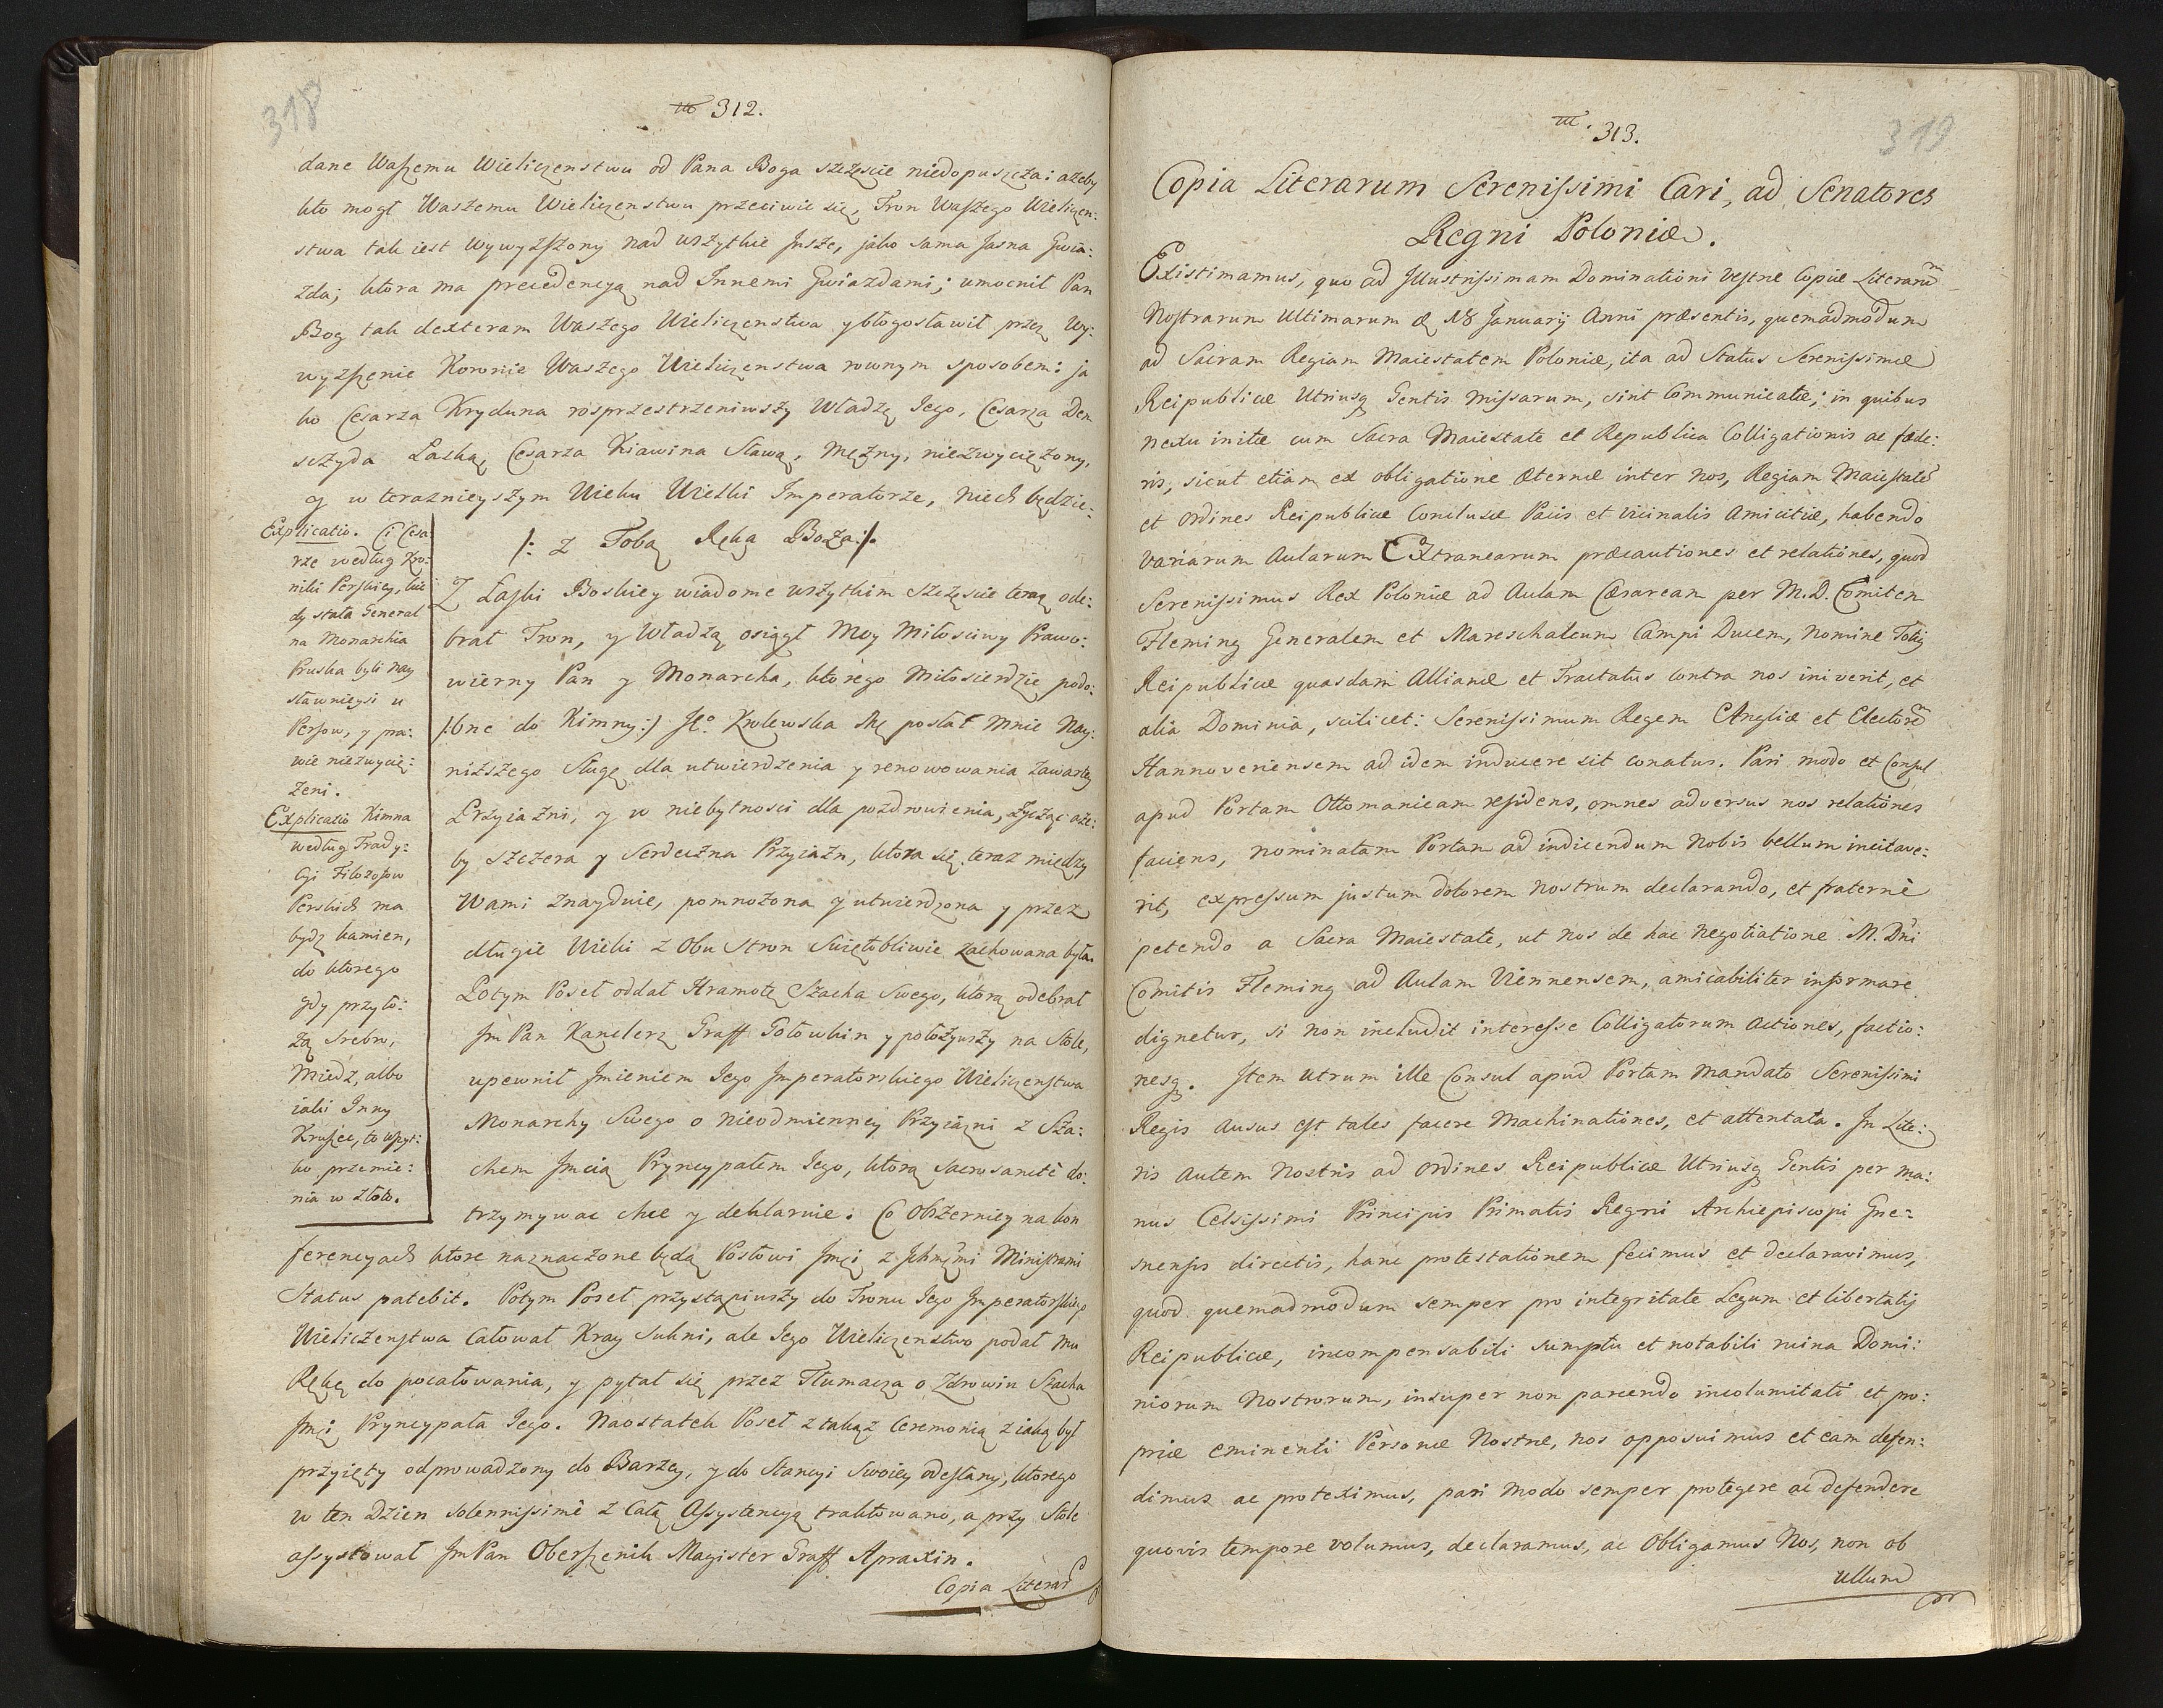 318
312.
dane Waszemu Wieliczenstwu od Pana Boga szczęscie niedopuszcza: azeby
kto mogł Waszemu Wieliczenstwu przeciwic się, Tron Waszego Wieliczen:
stwa tak iest wywyzszony nad wszytkie Insze, jako sama Jasna Gwia:
zda; ktora ma precedencyą nad Innemi Gwiazdami; umocnił Pan
Bog tak dexteram Waszego Wieliczenstwa y błogosławił przez Wy:
wyzszenie Koronie Waszego Wieliczenstwa rownym sposobem: ja
ko Cesarza Kryduna rosprzestrzeniwszy Władzę Jego, Cesarza Dem
sczyda Laską, Cesarza Kiawina Sławą, Męzny, niezwycięzony,
y w teraznieyszym Wieku Wielki Imperatorze, niech będzie:
/: z Tobą Ręka Boza:/.
Explicatio. Ci Cesa:
rze według Kro:
niki Perskiey, kie
dy stała General
na Monarchia
Pruska byli nay
sławnieysi u
Persow, y pra:
wie niezwycię:
zeni.
Explicatio Kimna
według Trady:
cyi Filozofow
Perskich ma
bydz kamien,
do ktorego
gdy przyło:
zą Srebro,
Miedz, albo
iaki Inny
Kruszec, to wszyt:
ko przemie:
nia w złoto.
Z Łaski Boskiey wiadome wszytkim szczęscie teraz ode:
brał Tron, y Władzą osiągł Moy Miłosciwy Prawo:
wierny Pan y Monarcha, ktorego Miłosierdzie podo:
/:bne do Kimny:/ Jego Krolewska Mć posłał mnie Nay:
nizszego Sługę dla utwierdzenia y renowowania zawartey
Przyiazni, y w niebytnosci dla pozdrowienia, zycząc aze:
by szczera y Serdeczna Przyiazn, ktora się teraz między
Wami znayduie, pomnozona y utwierdzona y przez
długie Wieki z Obu Stron Swiętobliwie zachowana była.
Potym Poseł oddał Hramotę Szacha Swego, ktorą odebrał
Jm Pan Kanclerz Graff Gołowkin y połozywszy na Stole,
upewnił Jmieniem Jego Jmperatorskiego Wieliczenstwa
Monarchy Swego o Nieodmienney Przyiazni z Sza:
chem Jmcią Pryncypałem Jego, ktorą sacrosanctè do:
trzymywac chce y deklaruie. Co Obszerniey na kon
ferencyach ktore naznaczone będą Posłowi Jmci z Ichmćmi Ministrami
Status patebit. Potym Poseł przystąpiwszy do Tronu Jego Jmperatorskiego
Wieliczenstwa Całował Kray Sukni, ale Jego Wieliczenstwo podał mu
Rękę do pocałowania, y pytał się przez Tłumacza o Zdrowiu Szacha
Jmci Pryncypała Jego. Naostatek Poseł z takąz Ceremonią z iaką był
przyięty odprowadzony do Barzey, y do Stancyi Swoiey odesłany, ktorego
w ten Dzien solennissimè z Całą Assystencyą traktowano, a przy Stole
assystował Jm Pan Oberszenik Magister Graff Apraxin.
Copia Literar
319
313.
Copia Literarum Serenissimi Cari, ad Senatores
Regni Poloniæ.
Existimamus, quo ad Illustrissimam Dominationi Vestræ Copiæ Literarum
Nostrarum Ultimarum 18 Januarij Anni præsentis, quemadmodum
ad Sacram Regiam Maiestatem Poloniæ, ita ad Status Serenissimæ
Reipublicæ Utriusq Gentis missarum, sint Communicatæ; in quibus
nexu initæ cum Sacra Maiestate et Republica Colligationis ac fæde:
ris, sicut etiam ex obligatione æternæ inter nos, Regiam Maiestatem
et Ordines Reipublicæ Conclusæ Pacis et vicinalis Amicitiæ, habendo
variarum Aularum Extranearum præcautiones et relationes, quod
Serenissimus Rex Poloniæ ad Aulam Cæsaream per M. D. Comitem
Fleming Generalem et Mareschalcum Campi Ducem, nomine Totius
Reipublicæ quasdam Allianæ et Tractatus contra nos iniverit, et
alia Dominia, scilicet: Serenissimum Regem Angliæ et Electorem
Hannoveriensem ad idem inducere sit conatus. Pari modo et Consul
apud Portam Ottomanicam residens, omnes adversus nos relationes
faciens, nominatam Portam ad indicendum Nobis bellum incitave:
rit, expressum justum dolorem nostrum declarando, et fraternè
petendo a Sacra Maiestate, ut nos de hac Negotiatione M. Dni
Comitis Fleming ad Aulam Viennensem, amicabiliter informare
dignetur, si non includit interesse Colligatorum Actiones, factio:
nesq. Item utrum ille Consul apud Portam mandato Serenissimi
Regis Ausus est tales facere Machinationes, et attentata. In Lite:
ris Autem Nostris ad Ordines Reipublicæ Utriusq Gentis per ma:
nus Celsissimi Principis Primatis Regni Archiepiscopi Gne:
snensis directis, hanc protestationem fecimus et declaravimus,
quod quemadmodum semper pro integritate Legum et libertatis
Reipublicæ, incompensabili sumptu et notabili ruina Domi:
niorum Nostrorum, insuper non parcendo incolumitati et pro:
priæ eminenti Personæ Nostræ, nos opposuimus et eam defen:
dimus ac proteximus, pari modo semper protegere ac defendere
quovis tempore volumus, declaramus, ac Obligamus Nos, non ob
ullum